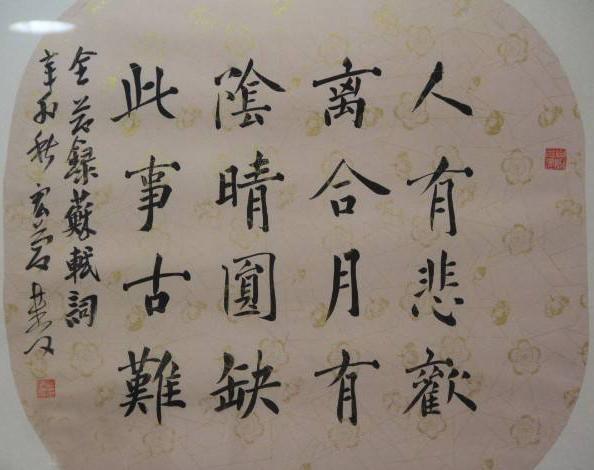 人有悲歡
离合月有
陰晴圓缺
此事古難
全节錄蘇軾詞
辛卯秋